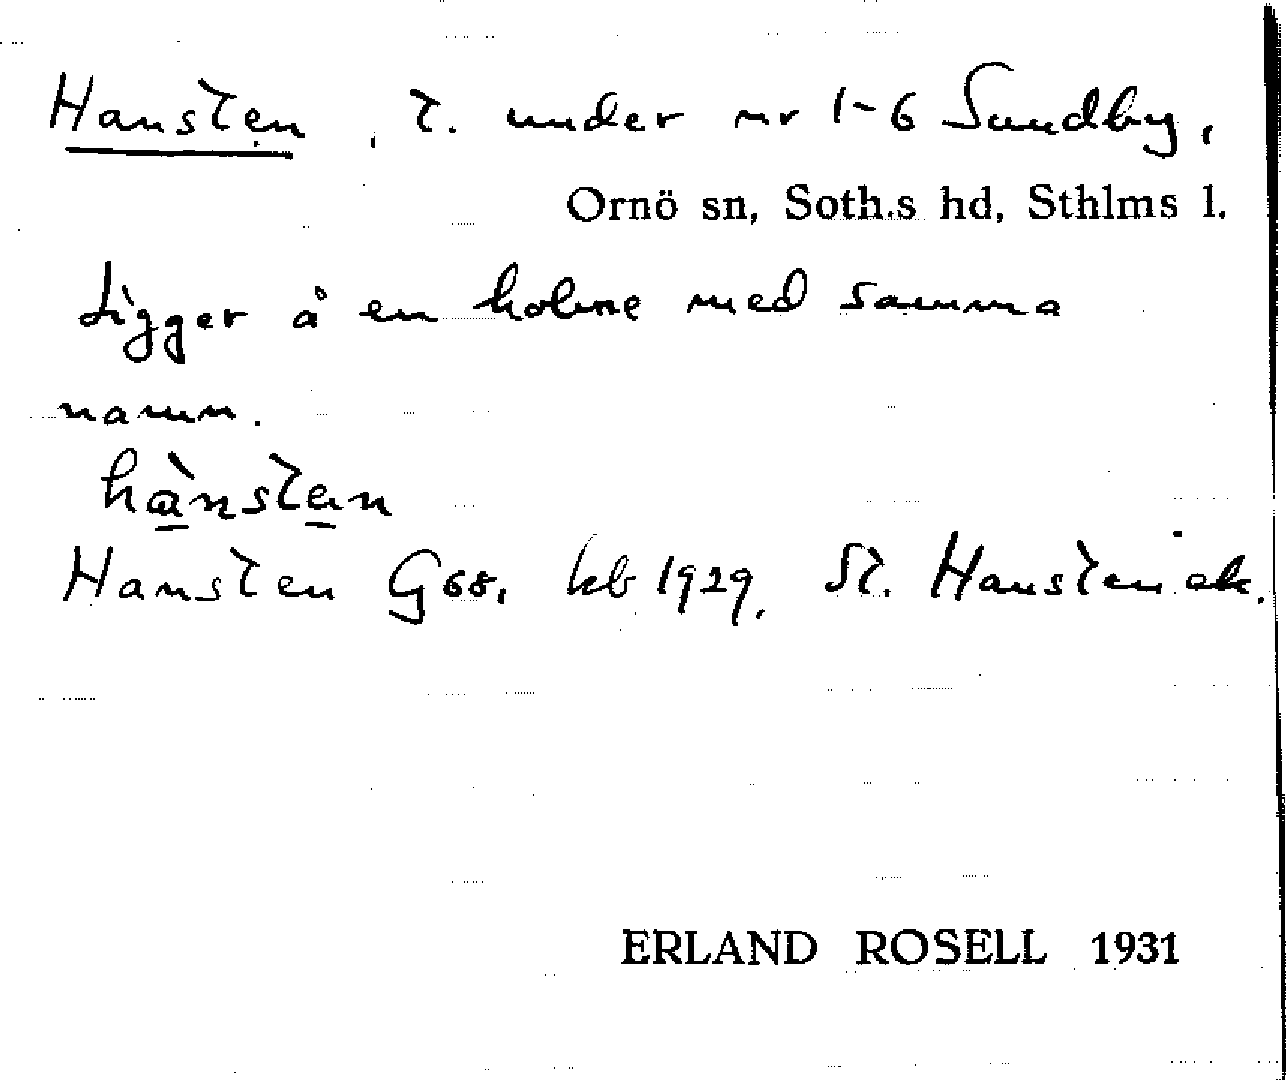 Hansten, t. under nr 1-6 Sundby,
Ornö sn, Soth.s hd, Sthlms l.
Ligger å en holme med samma
namn.
hànsten
Hansten G68. kb 1929. St. Hansten ek.